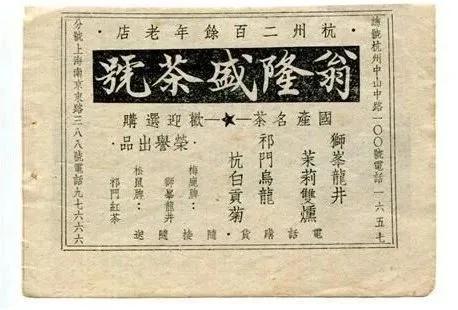 杭州二百餘年老店
翁隆盛茶號
國產名茶★歡迎選購
獅峯龍井
茉莉雙燻
祁門烏龍
杭白貢菊
·榮譽出品·
梅鹿牌：
獅峯龍井
松鼠牌：
祁門紅茶
電話購貨·隨接隨送
總號杭州中山中路一〇〇號電話一六五七
分號上海南京東路三八八號電話九七六六六